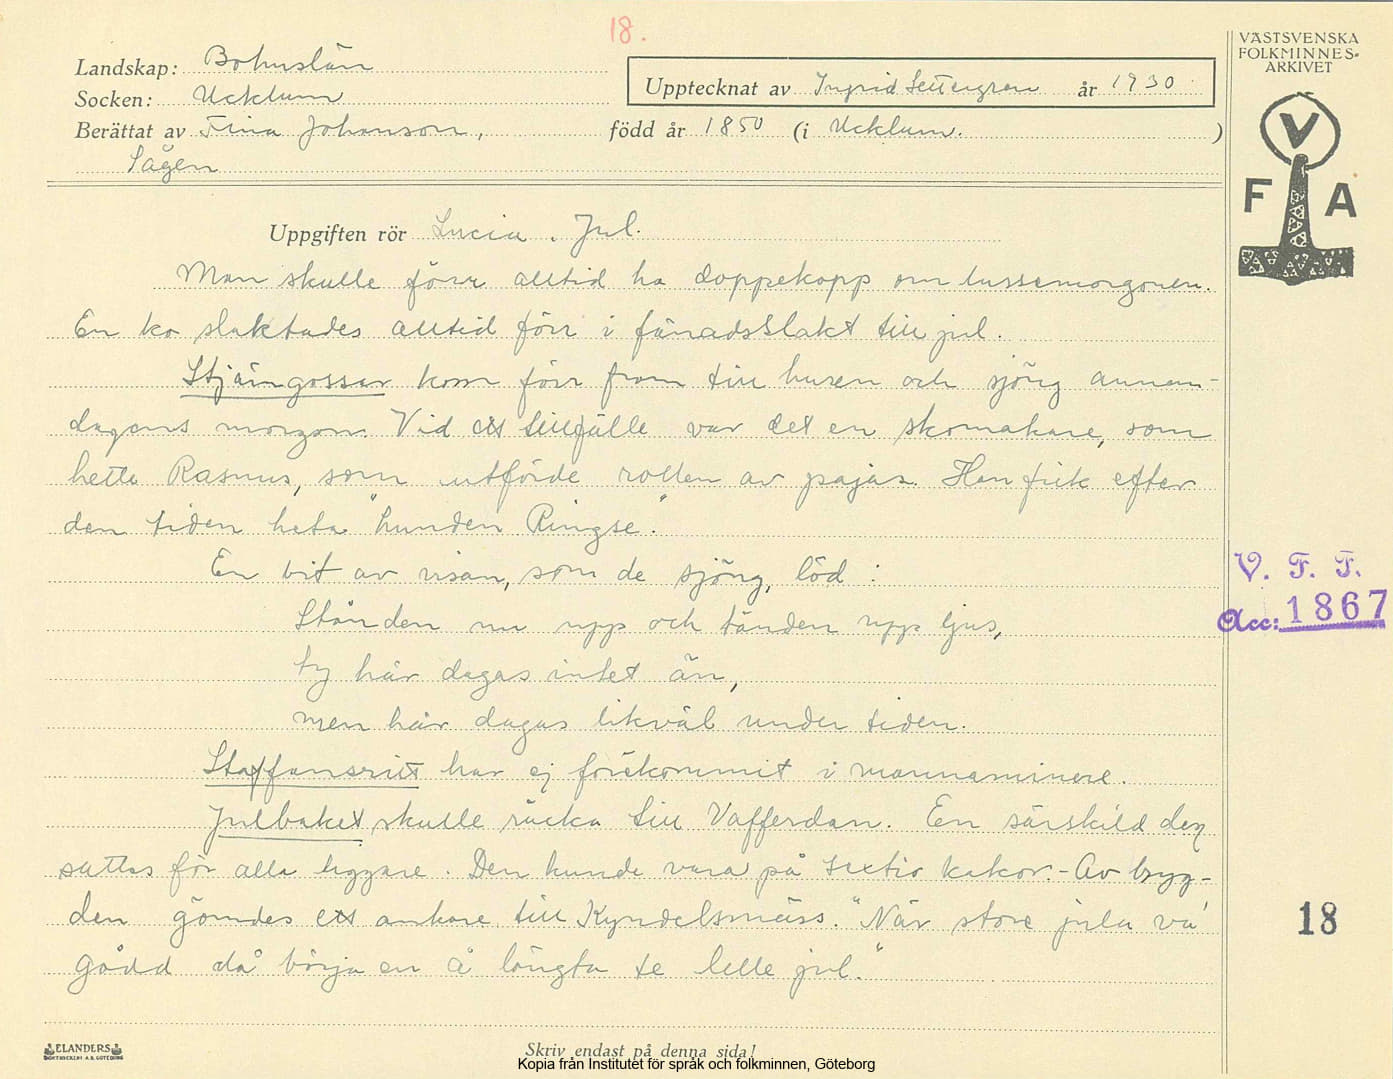 18.
VÄSTSVENSKA
FOLKMINNES-
ARKIVET
Landskap: Bohuslän
Socken: Ucklum
Upptecknat av Ingrid Settergren år 1930
Berättat av Tina Johanson, född år 1850 (i Ucklum. )
Sägen
V
F A
Uppgiften rör Lucia. Jul.
Man skulle förr alltid ha doppekopp om lussemorgonen.
En ko slaktades alltid förr i fänadsslakt till jul.
Stjärngossar kom förr fram till husen och sjöng annan-
dagens morgon. Vid ett tillfälle var det en skomakare, som
hette Rasmus, som utförde rollen av pajas. Han fick efter
den tiden heta "hunden Ringse".
En bit av visan, som de sjöng, löd:
Stånden nu upp och tänden upp ljus,
ty här dagas intet än,
men här dagas likväl under tiden.
Staffansritt har ej förekommit i mannaminne.
Julbaket skulle räcka till Vafferdan. En särskild deg
sattes för alla tiggare. Den kunde vara på sextio kakor. - Av bryg-
den gömdes ett ankare till Kyndelsmäss. "När store jula va'
gådd då börja en å längta te lelle jul."
V. F. F.
Acc: 1867
18
ELANDERS
BOKTRYCKERI A.B. GÖTEBORG
Skriv endast på denna sida!
Kopia från Institutet för språk och folkminnen, Göteborg